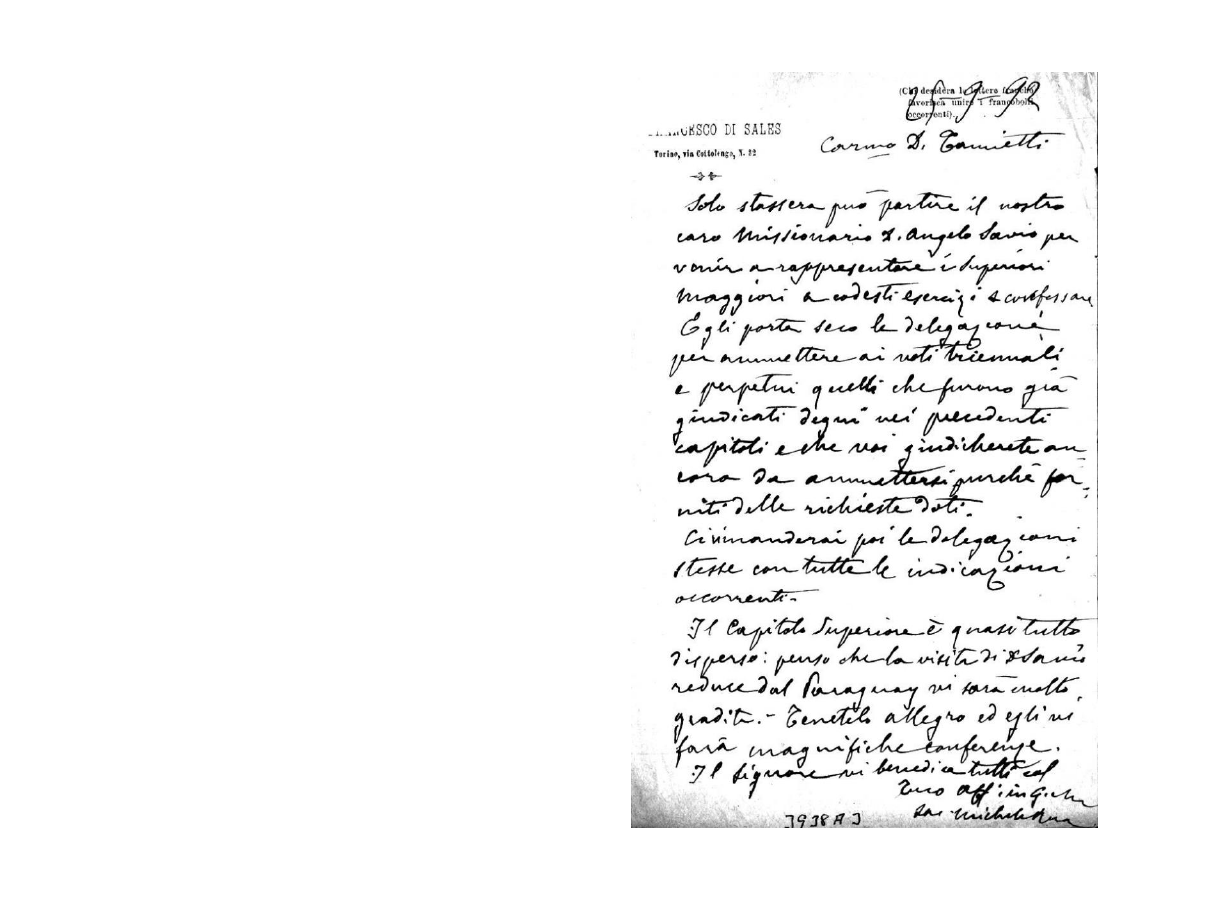 (Chi desidera le lettere franche
favorisca unire i francobolli
occorrenti).
25-9-92
FRANCESCO DI SALES
Torino, via Cottolengo, N. 32
Carmo D. Tamietti
Solo stassera può partire il nostro
caro Missionario D. Angelo Savio per
venir a rappresentare i Superiori
Maggiori a codesti esercizi e confessare
Egli porta seco le delegazioni
per ammettere ai voti triennali
e perpetui quelli che furono già
giudicati degni nei precedenti
capitoli e che voi giudicherete an
cora da ammettersi purchè for-
niti delle richieste doti.
Ci rimanderai poi le delegazioni
stesse con tutte le indicazioni
occorrenti.-
Il Capitolo Superiore è quasi tutto
disperso: penso che la visita di D Savio
reduce dal Paraguay vi sarà molto
gradita.- Tenetelo allegro ed egli vi
farà magnifiche conferenze.
Il Signore vi benedica tutti col
Tuo aff. in G. 
Sac. Michele Rua
3938 A 3